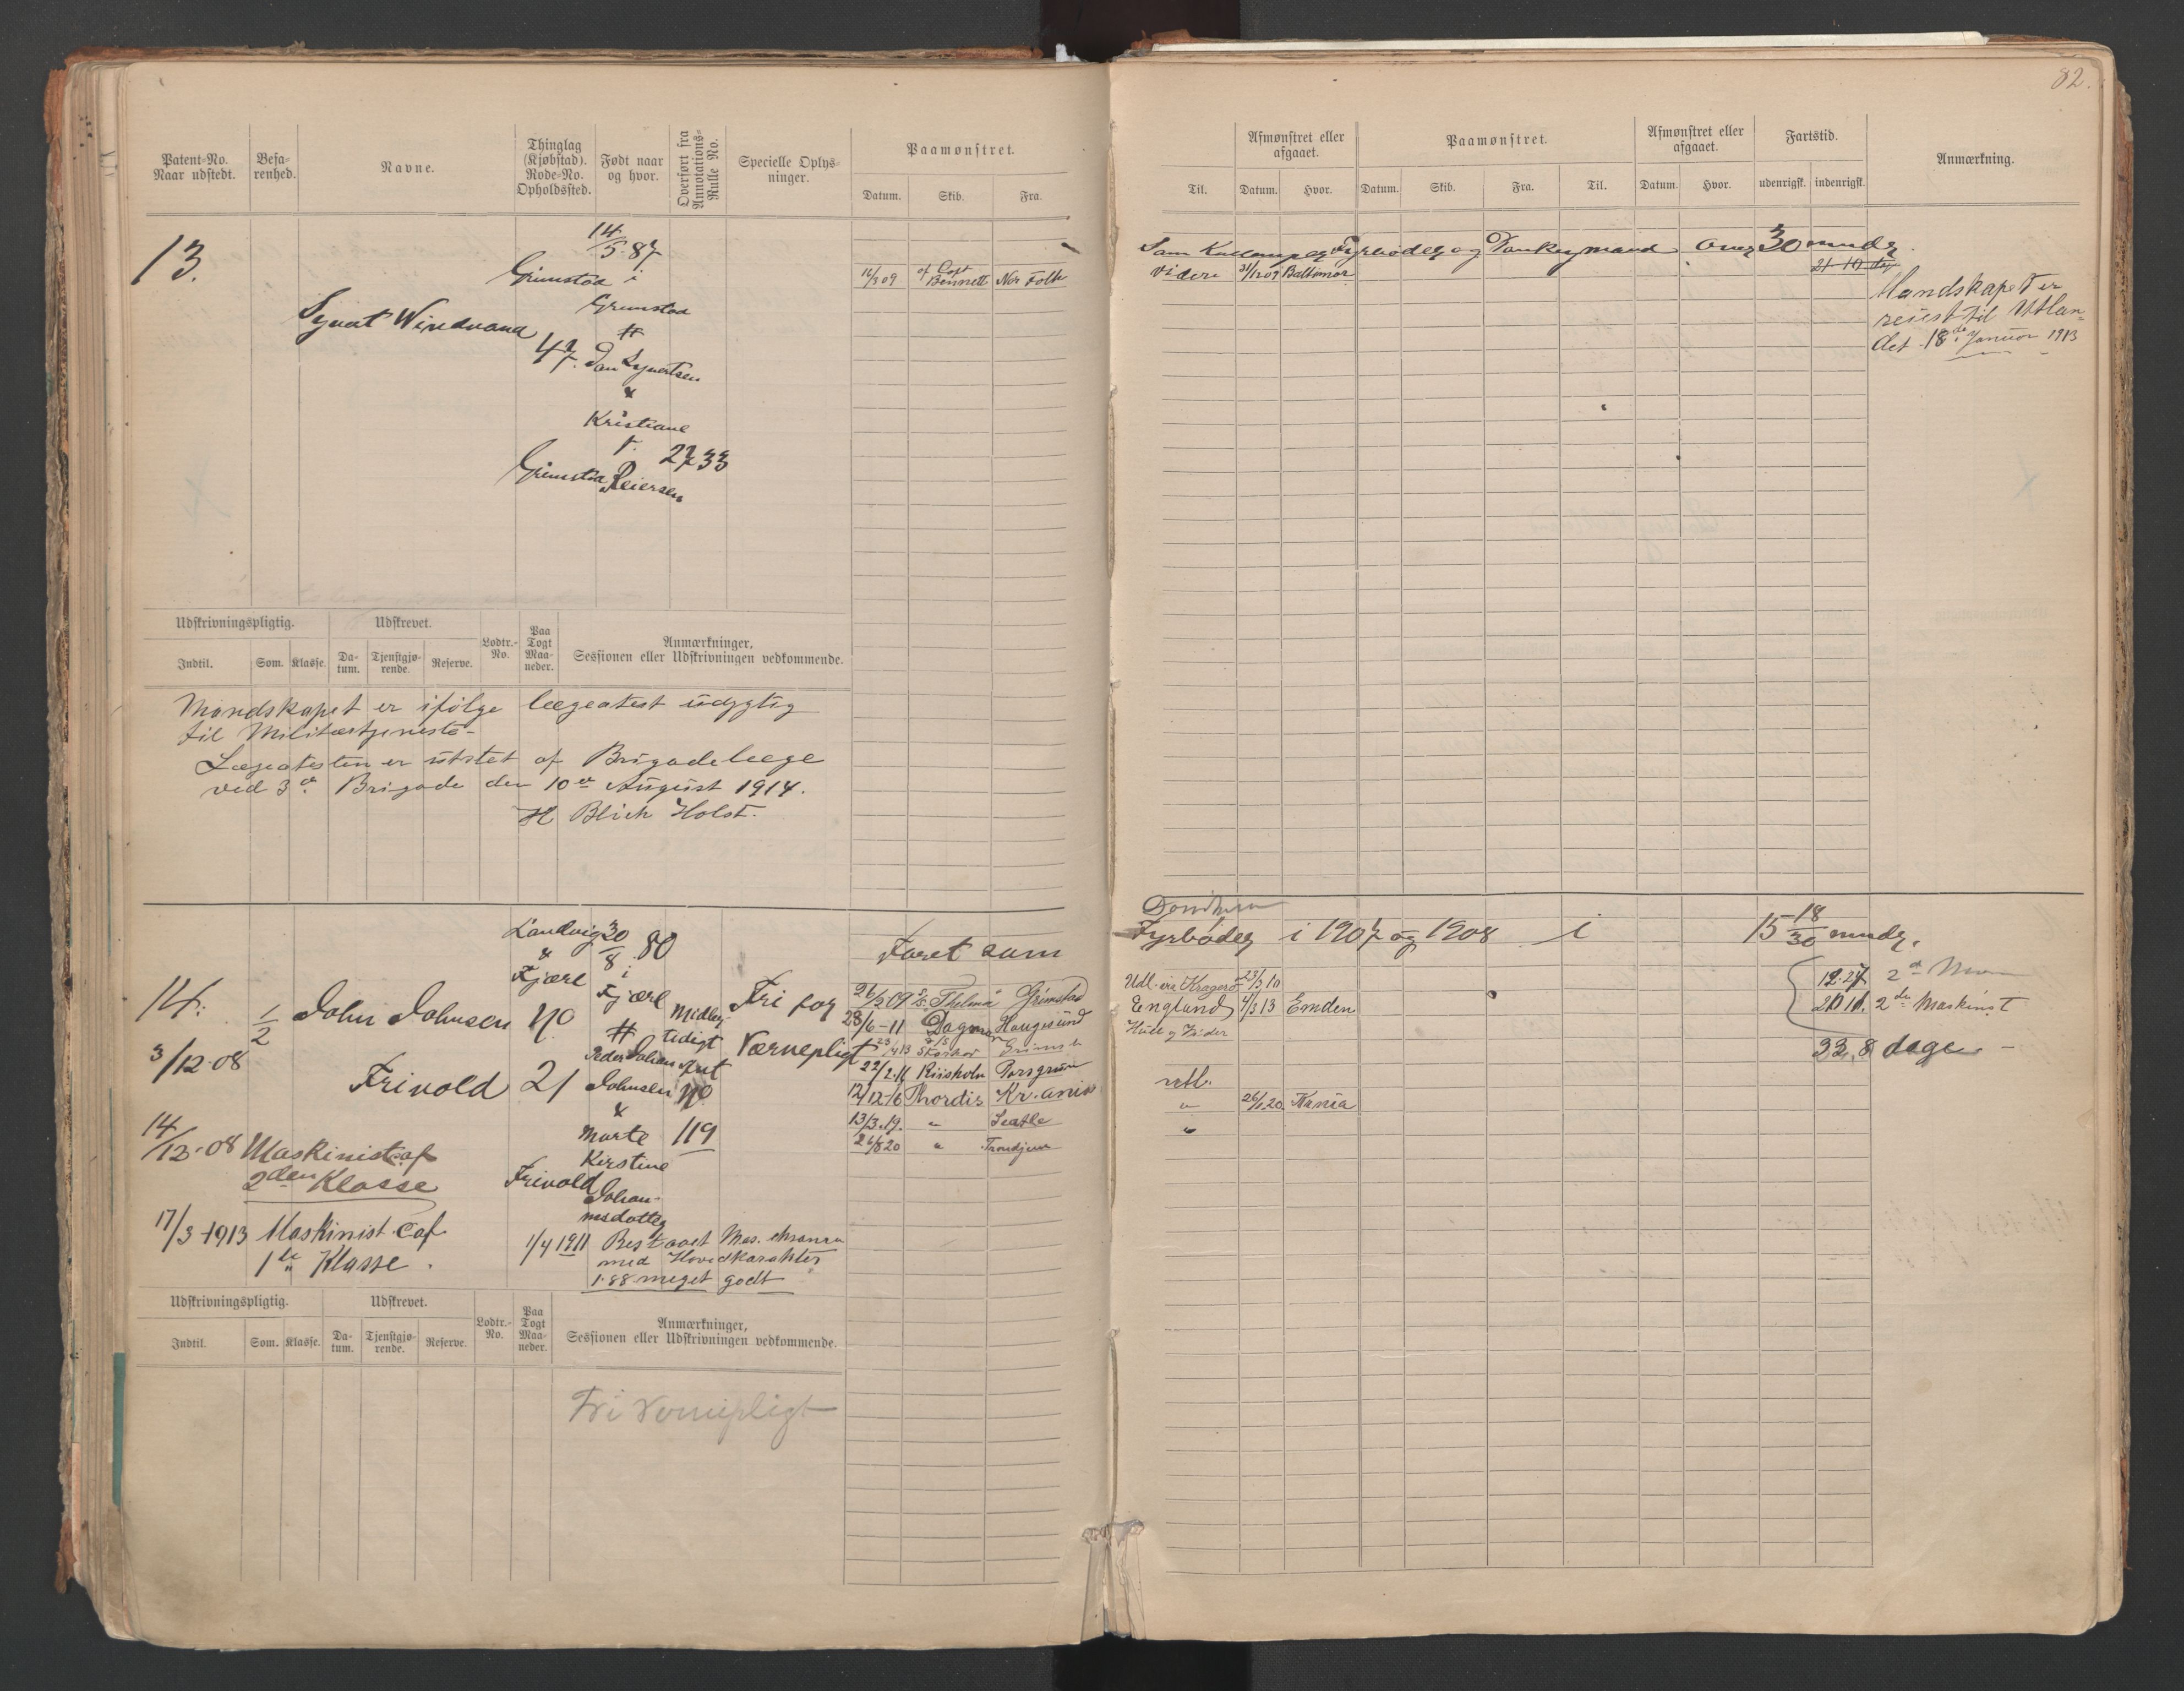 82.
Patent-No. Naar udstedt.
Befa-renhed.
Navne.
Thinglag (Kjøbstad). Rode-No. Opholdssted.
Født naar og hvor.
Overført fra Annotations-Rulle No.
Specielle Oplys-ninger.
Paamønstret.
Datum. Skib. Fra.
Afmønstret eller afgaaet.
Paamønstret.
Afmønstret eller afgaaet.
Fartstid.
Anmærkning.
Til. Datum. Hvor. Datum. Skib. Fra. Til. Datum. Hvor. udenrigsk. indenrigsk.
13.
14/5 87
Grimstad i
Grimstad
Syvert Windvand
47. Jan Syvertsen
&
Kristiane
f. 2733
Grimstad Reiersen
16/3 09 af Capt Bennett Nor Folk
Som Kullemper Fyrbøder og Donkeymand over 30 mndr.
videre 31/12 09 Baltimor
21-10 dg
Mandskapet er
reist til Utlan-
det 18de Januar 1913
Udskrivningspligtig. Udskrevet. Lodtr.-No. Paa Togt Maa-neder. Anmærkninger, Sessionen eller Udskrivningen vedkommende.
Indtil. Som. Klasse. Da-tum. Tjenstgjø-rende. Reserve.
Mandskapet er ifølge lægeatest udygtig
til Militærtjeneste-
Lægeatesten er utstet af Brigadelæge
ved 3de Brigade den 10de August 1914.
H Blich Holst.
Landvig 30/8 80
& i
Fjære Fjære
14. 1/2 John Johnsen No # Midler-tidigt Fri for
3/12-08 Peder Johan Ant Værnepligt
Frivold 21 Johnsen No.
&
14/12-08 Maskinist af Marte 119
2den Klasse Kirstine
Frivold Johan-
nsdatter
17/3-1913 Maskinist Caf.
1ste Klasse.
1/4 1911 Bestaaet Mas. eksamen
med Hovedkarakter
1.88 meget godt
Faret som
26/3 09 Thelma Grimstad
28/6-11 Dagmar Haugesund
23/4 13
22/2.16 Riisholm Porsgrunn
12/12-16 Thordis Kr.ania
13/3.19. " Seatle
26/8 20 " Trondjem
Fyrbøder i 1907 og 1908 i 15 18/30 mndr.
Udl. via Kragerø 23/3 10 12.27 2d
England 4/3 13 Emden 20 11. 2den Maskinist
33. 8 dage
utl.
" 26/1.20 Krania
"
Udskrivningspligtig. Udskrevet. Lodtr.-No. Paa Togt Maa-neder. Anmærkninger, Sessionen eller Udskrivningen vedkommende.
Indtil. Som. Klasse. Da-tum. Tjenstgjø-rende. Reserve.
Fri Vernepligt